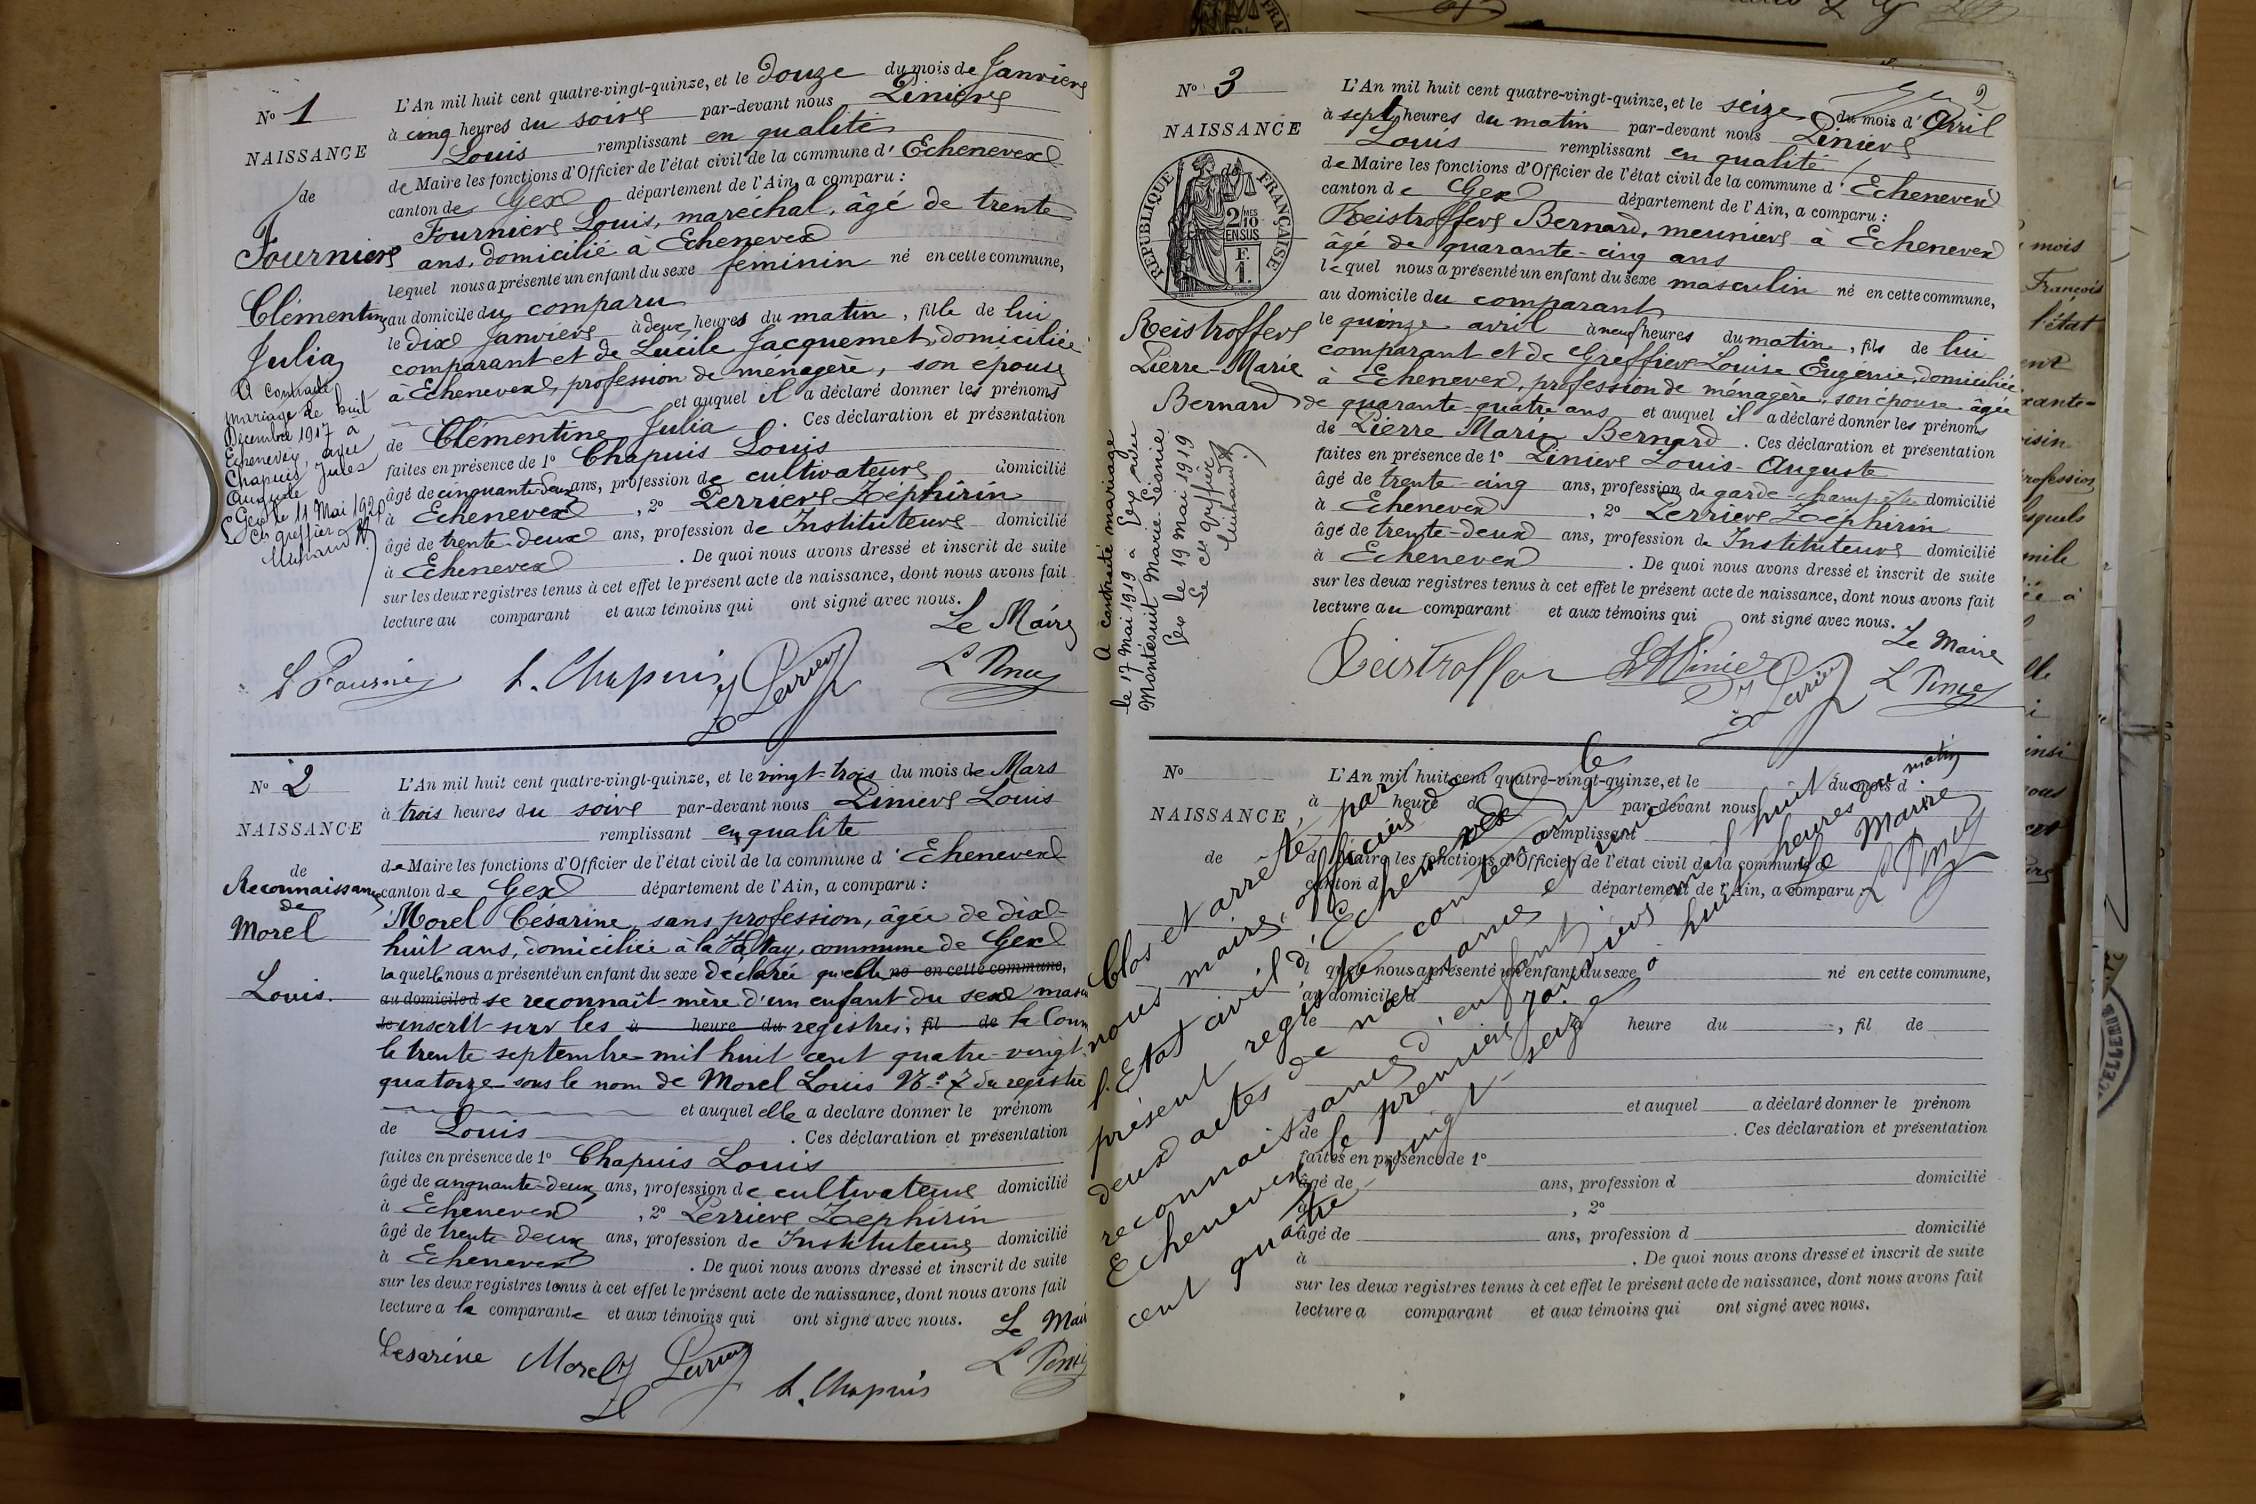 N° 1
NAISSANCE
de
Fournier
Clémentine
Julia
A contracté
mariage le huit
Décembre 1917 à
Echenevex, avec
Chapuis Jules
Auguste
Gex le 11 Mai 1920
Le Cis greffier
L'An mil huit cent quatre-vingt-quinze, et le douze du mois de Janvier
à cinq heures du soir par-devant nous Pinier
Louis remplissant en qualité
de Maire les fonctions d'Officier de l'état civil de la commune d'Echenevex
canton de Gex département de l'Ain, a comparu :
Fournier Louis, maréchal, âgé de trente
ans, domicilié à Echenevex
lequel nous a présenté un enfant du sexe féminin né en cette commune,
au domicile du comparu
le dix Janvier à deux heures du matin, fille de lui
comparant et de Lucile Jacquemet, domiciliée
à Echenevex, profession de ménagère, son épouse
et auquel il a déclaré donner les prénoms
de Clémentine Julia . Ces déclaration et présentation
faites en présence de 1° Chapuis Louis
âgé de cinquante-deux ans, profession de cultivateur domicilié
à Echenevex , 2° Perrier Zéphirin
âgé de trente-deux ans, profession de Instituteur domicilié
à Echenevex . De quoi nous avons dressé et inscrit de suite
sur les deux registres tenus à cet effet le présent acte de naissance, dont nous avons fait
lecture au comparant et aux témoins qui ont signé avec nous.
Le Maire
L Fournier L. Chapuis Z Perrier L Pinier
N° 2
NAISSANCE
de
Reconnaissance
de
Morel
Louis.
L'An mil huit cent quatre-vingt-quinze, et le vingt-trois du mois de Mars
à trois heures du soir par-devant nous Pinier Louis
remplissant en qualité
de Maire les fonctions d'Officier de l'état civil de la commune d'Echenevex
canton de Gex département de l'Ain, a comparu :
Morel Césarine, sans profession, âgée de dix-
huit ans, domiciliée à la commune de Gex
laquelle nous a présenté un enfant du sexe déclarée qu'elle né en cette commune,
au domicile d se reconnaît mère d'un enfant du sexe mascu
le inscrit sur les à heure du registres, fil de la Com
le trente septembre mil huit cent quatre-vingt-
quatorze sous le nom de Morel Louis N° 7 du registre
et auquel elle a déclaré donner le prénom
de Louis . Ces déclaration et présentation
faites en présence de 1° Chapuis Louis
âgé de cinquante-deux ans, profession de cultivateur domicilié
à Echenevex , 2° Perrier Zéphirin
âgé de trente-deux ans, profession de Instituteur domicilié
à Echenevex . De quoi nous avons dressé et inscrit de suite
sur les deux registres tenus à cet effet le présent acte de naissance, dont nous avons fait
lecture a la comparante et aux témoins qui ont signé avec nous.
Le Mai
Césarine Morel Z Perrier L. Chapuis L Pinier
2
N° 3
NAISSANCE
de
RÉPUBLIQUE FRANÇAISE
2/10 MES
EN SUS
1 F.
Reistroffer
Pierre-Marie
Bernard
A contracté mariage
le 17 mai 1919 à Gex avec
Montérsuit Marie Léonie
Gex le 19 mai 1919
Le Cis Greffier
L'An mil huit cent quatre-vingt-quinze, et le seize du mois d'Avril
à sept heures du matin par-devant nous Pinier
Louis remplissant en qualité
de Maire les fonctions d'Officier de l'état civil de la commune d'Echenevex
canton de Gex département de l'Ain, a comparu :
Reistroffer Bernard, meunier à Echenevex
âgé de quarante-cinq ans
lequel nous a présenté un enfant du sexe masculin né en cette commune,
au domicile du comparant
le quinze avril à neuf heures du matin, fils de lui
comparant et de Greffier Louise Eugénie, domiciliée
à Echenevex, profession de ménagère, son épouse âgée
de quarante-quatre ans et auquel il a déclaré donner les prénoms
de Pierre Marie Bernard . Ces déclaration et présentation
faites en présence de 1° Pinier Louis-Auguste
âgé de trente-cinq ans, profession de garde-champêtre domicilié
à Echenevex , 2° Perrier Zéphirin
âgé de trente-deux ans, profession de Instituteur domicilié
à Echenevex . De quoi nous avons dressé et inscrit de suite
sur les deux registres tenus à cet effet le présent acte de naissance, dont nous avons fait
lecture au comparant et aux témoins qui ont signé avec nous.
Le Maire
Reistroffer L A Pinier Z Perrier L Pinier
N°
NAISSANCE
de
L'An mil huit cent quatre-vingt-quinze, et le du mois d
à heure d par-devant nous
remplissant
d Maire les fonctions d'Officier de l'état civil de la commune d
canton d département de l'Ain, a comparu :
l quel nous a présenté un enfant du sexe né en cette commune,
au domicile d
le à heure du , fil de
et auquel a déclaré donner le prénom
de . Ces déclaration et présentation
faites en présence de 1°
âgé de ans, profession d domicilié
à , 2°
âgé de ans, profession d domicilié
à . De quoi nous avons dressé et inscrit de suite
sur les deux registres tenus à cet effet le présent acte de naissance, dont nous avons fait
lecture a comparant et aux témoins qui ont signé avec nous.
Clos et arrêté par
nous maire, officier de
l'Etat civil d'Echenevex le
présent registre contenant
deux actes de naissances et une
reconnaissance d'enfant à
Echenevex le premier janvier mil huit
cent quatre-vingt-seize à huit heures du matin
Le Maire
L Pinier